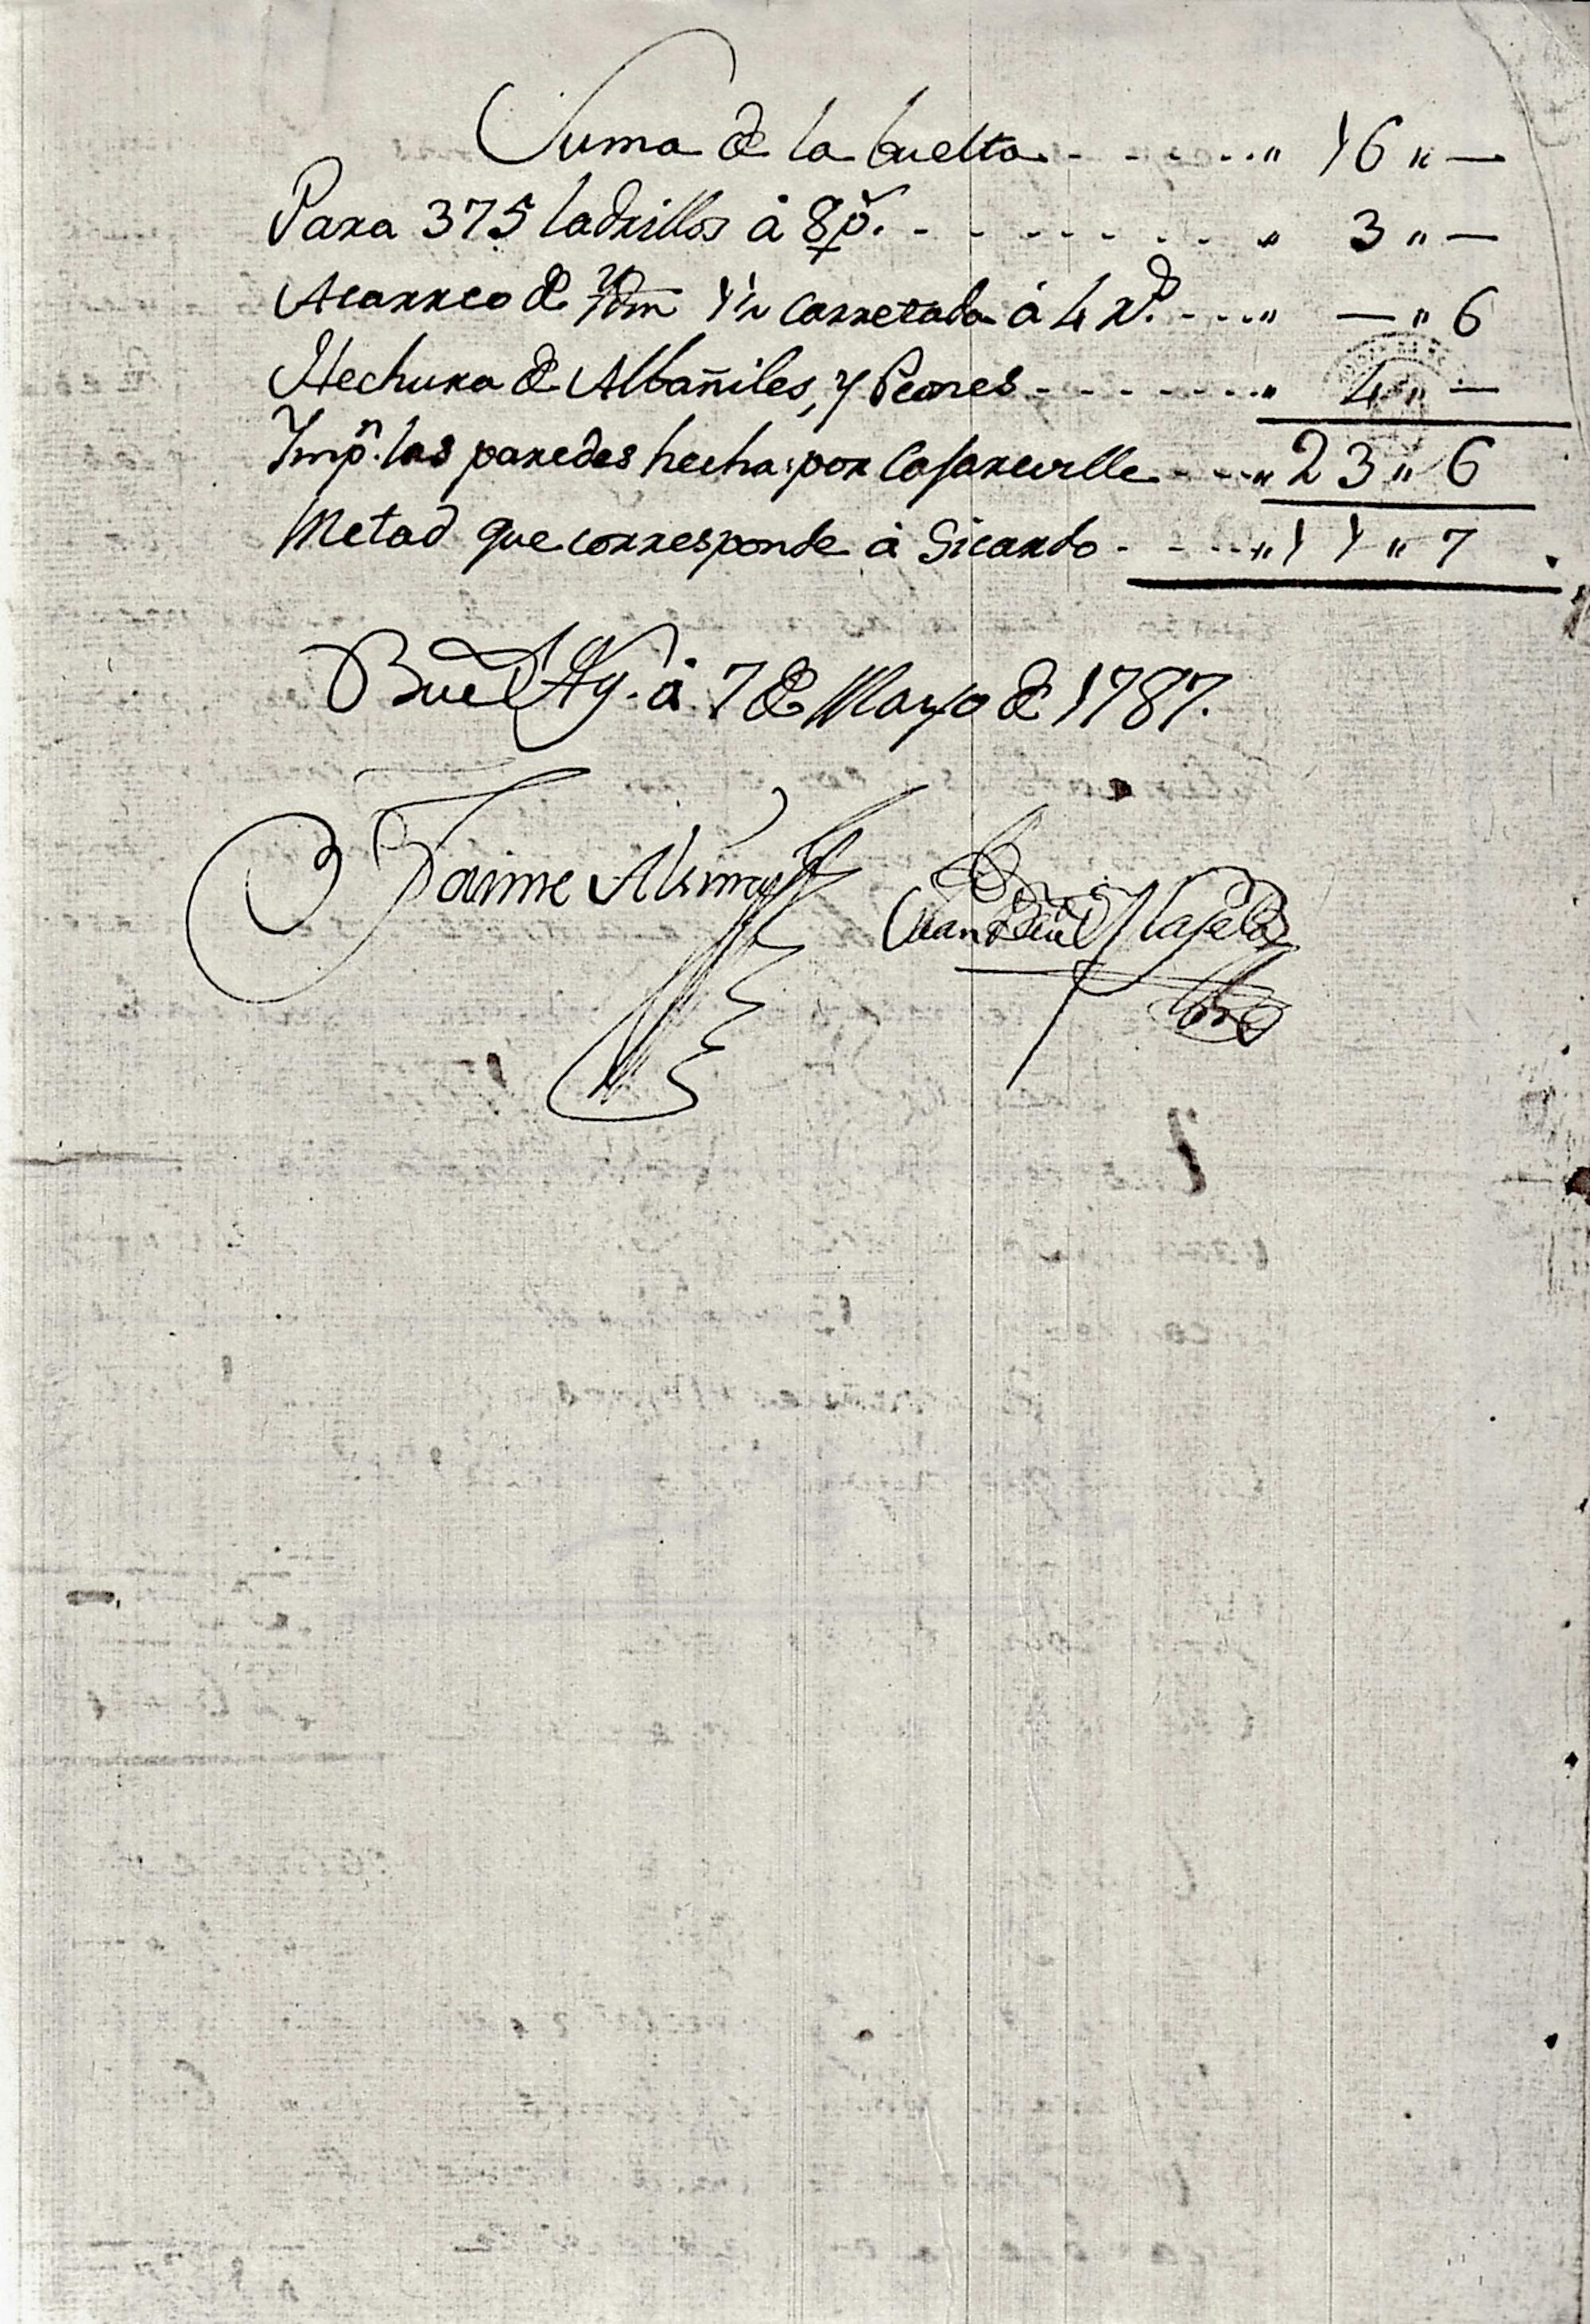 Suma de la buelta - - - - - „ 16 „ —
Para 375 ladrillos à 8 p.ˢ - - - - - - - - „ 3 „ —
Acarreo de Ydm 1½ carretada à 4 r.ˢ - - - „ — „ 6
Hechura de Albañiles, y Peones - - - - - - „ 4 „ —
Imp.ⁿ las paredes hecha por Casareville - - - „ 23 „ 6
Metad que corresponde à Sicardo - - - - „ 11 „ 7
Bue.ˢ Ay.ˢ à 7 de Mayo de 1787.
Jaime Juan